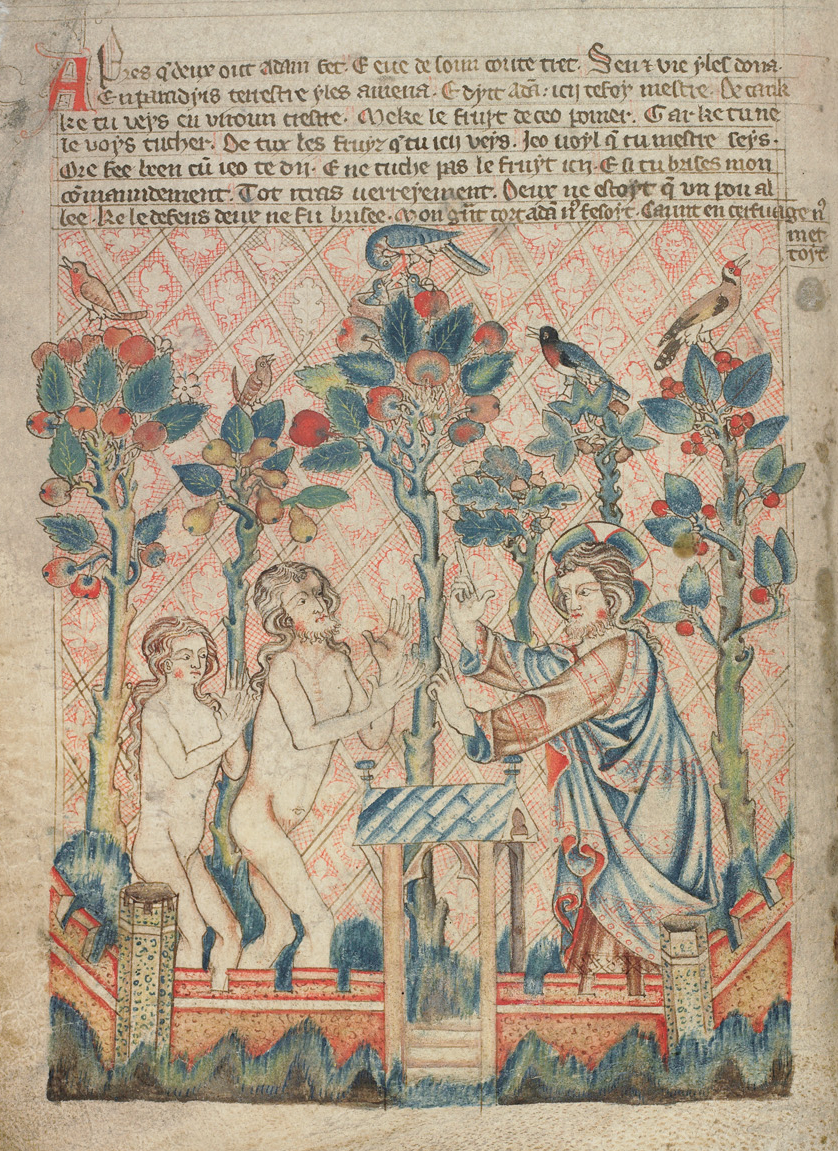 Apres q̃ deux out adam fet. E eue de soun coute tret. Sen ⁊ vie yles dona.
En paradyis terrestre yles amena. E dyit adã. icy te foy mestre. De cank
ke tu veys en viroun tiestre. Meke le fruyt de ceo pomer. Garke tu ne
le voys tucher. De tux les fruyz q̃ tu icy veys. Ieo voyl q̃ tu mestre seys.
Ore fee bien cũ ieo te dy. E ne tuche pas le fruyt icy. E si tu brises mon
cõmaundement. Tot irras verreyement. Deux ne estoyt q̃ vn pou al
lee. Ke le defens deux ne fu brisee. Mon grãt tort adã n᾿ fesoyt. Caunt en cerfuage n᾿
met
toyt